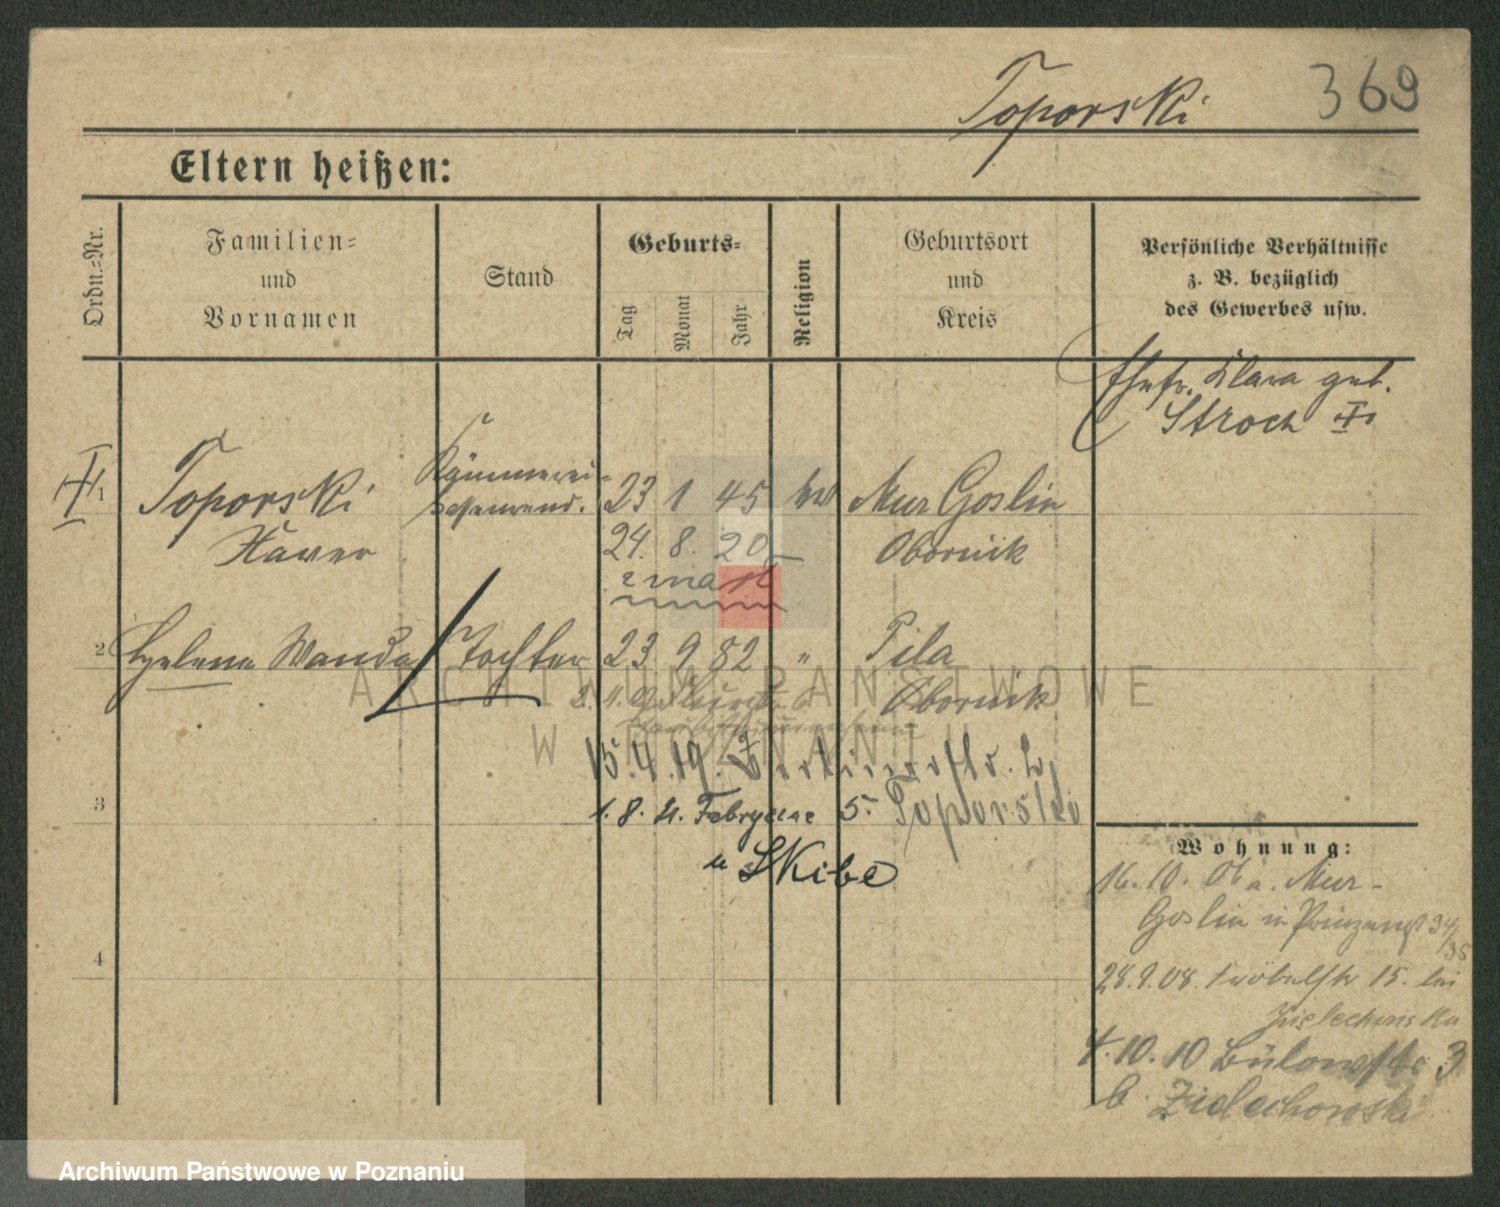 Toporski 369
Eltern heißen:
Ordn.=Nr.
Familien=
und
Vornamen
Stand
Geburts=
Tag
Monat
Jahr
Religion
Geburtsort
und
Kreis
Persönliche Verhältnisse
z. B. bezüglich
des Gewerbes usw.
Ehefr. Klara geb.
Stroch
1 Toporski Kämmerei- 23 1 45 Mur Goslin
Xaver 24. 8. 20 Obornik
zmarł
2 Helene Wanda Tochter 23 9 82 " Pila
Obornik
15. 4. 19.
3
1. 8. 21. 5. Toporski
u Skibe
Wohnung:
16. 10. 06 a. Mur-
Goslin in 34/35
28.9.08. Fröbelstr 15. bei
4
4.10.10 Bülowstr 3
b. Zielechowski
ARCHIWUM PAŃSTWOWE
W POZNANIU
Archiwum Państwowe w Poznaniu